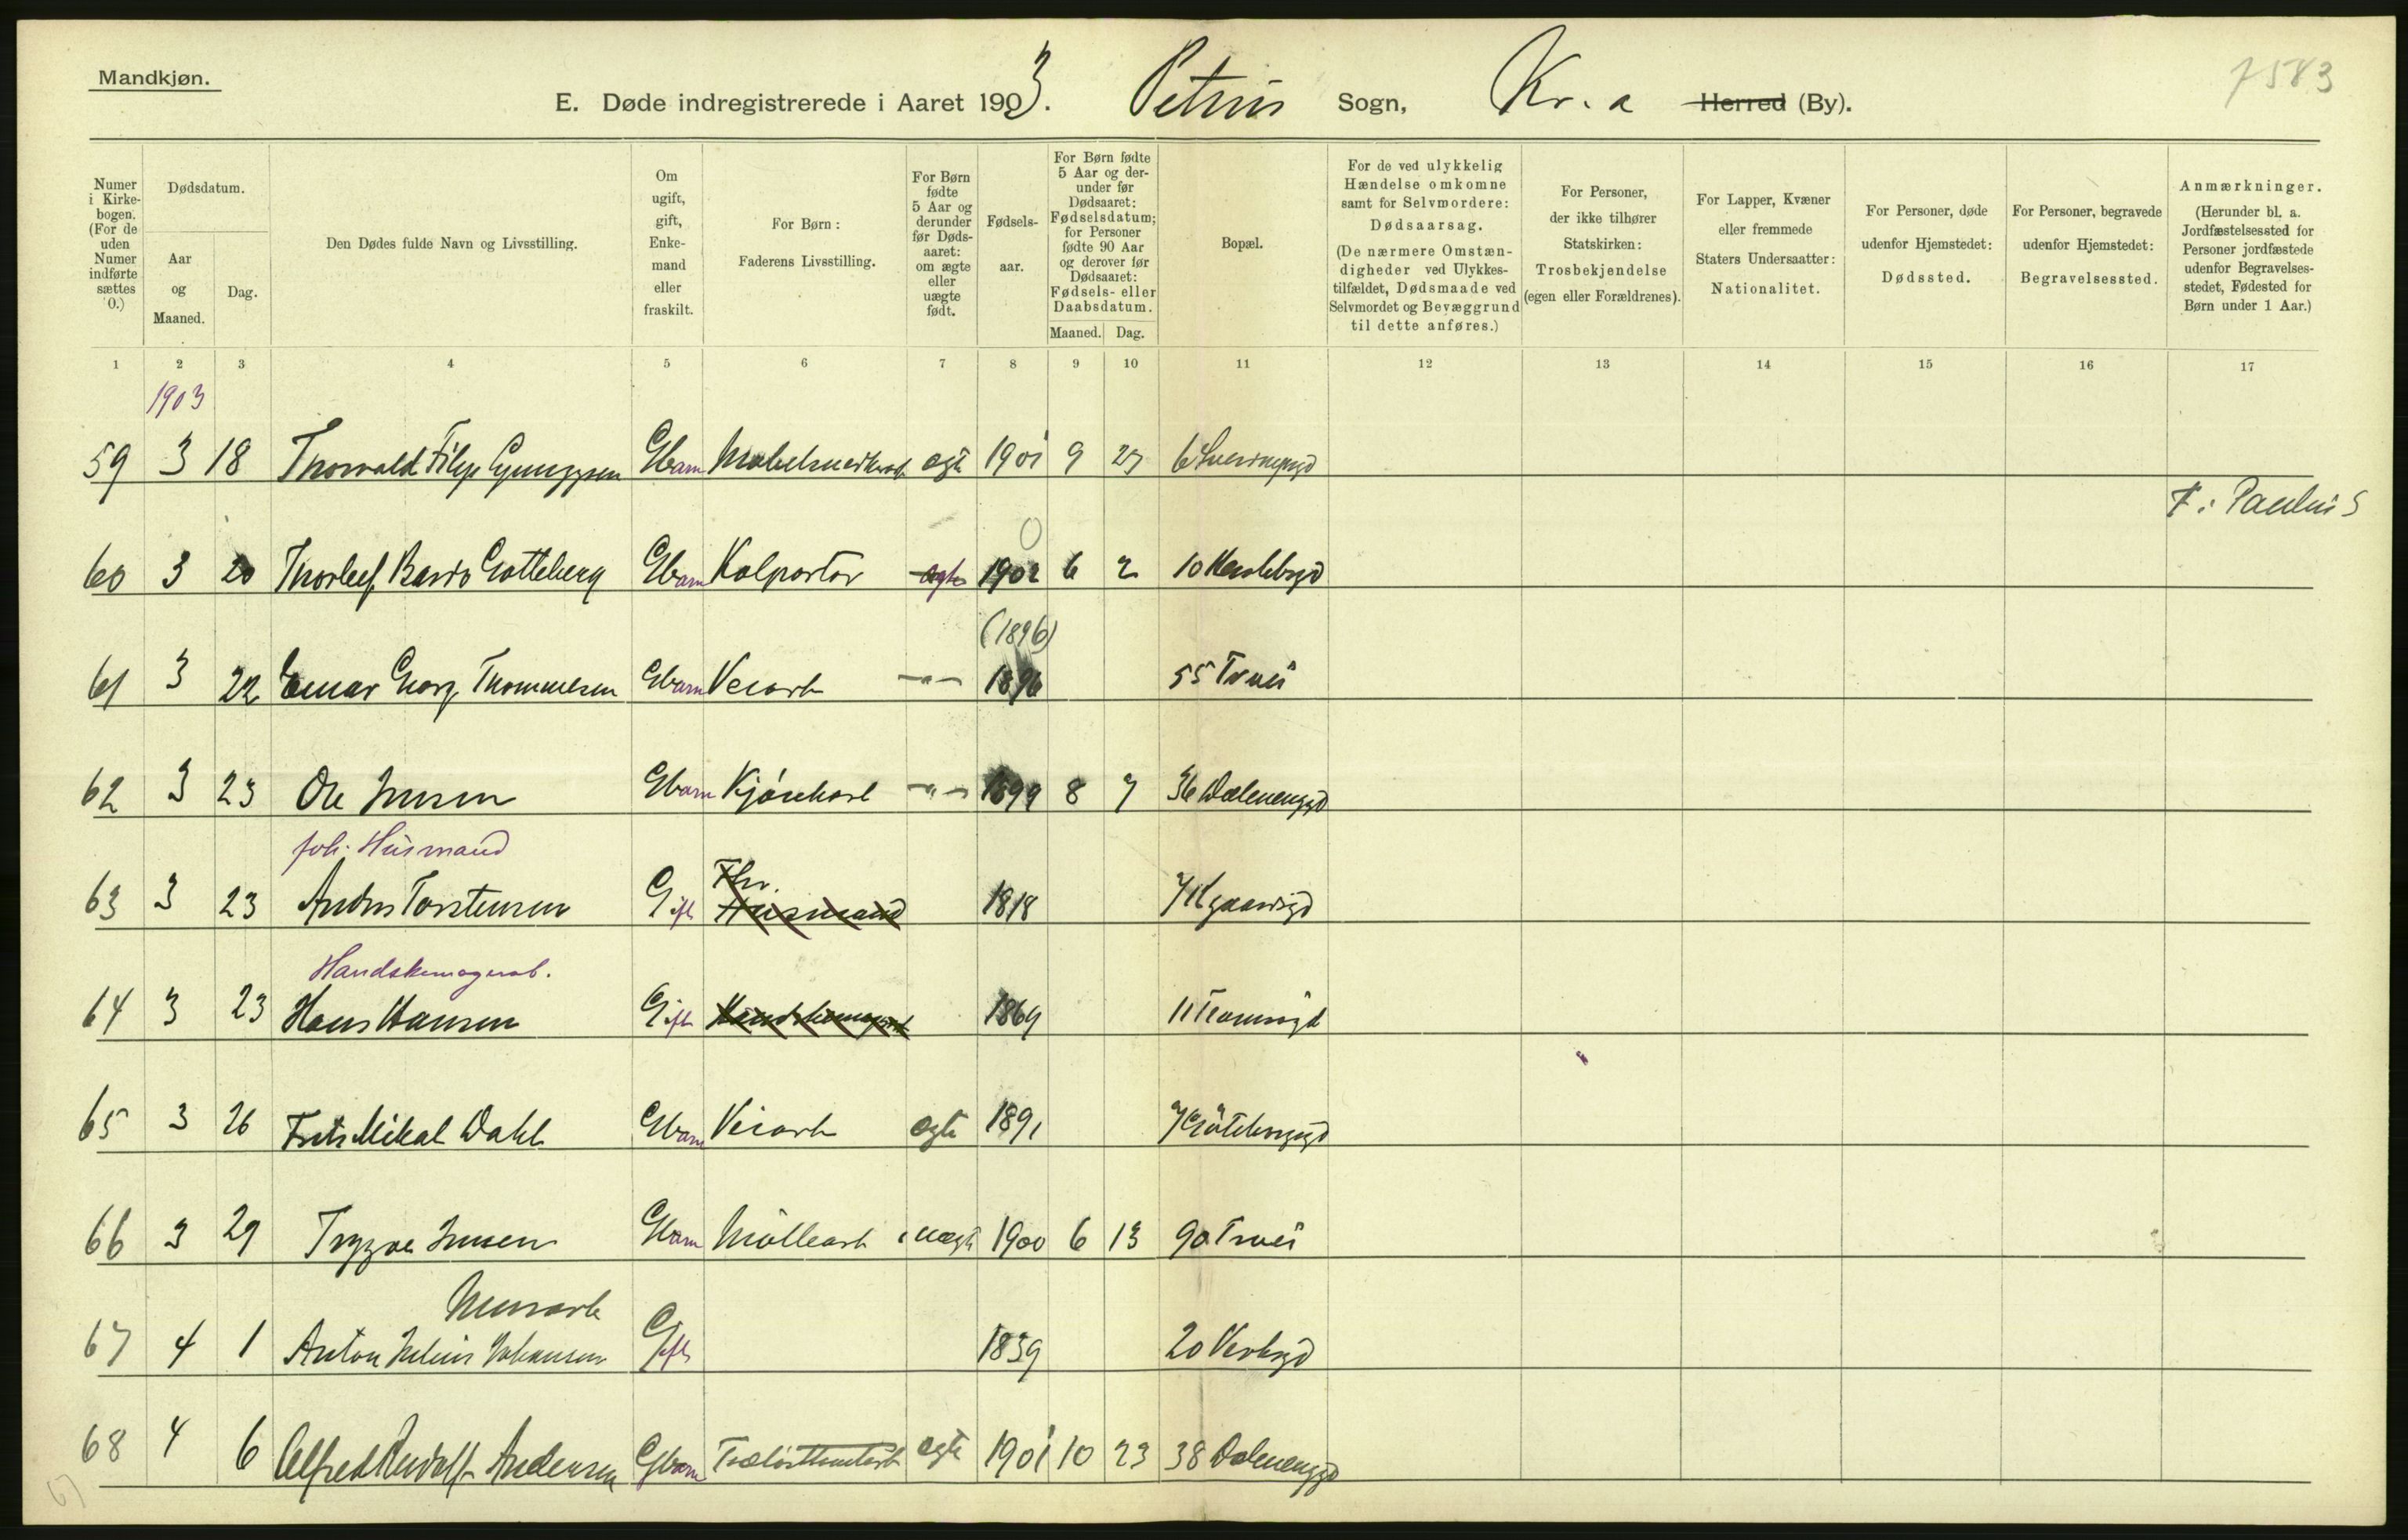 Mandkjøn.
E. Døde indregistrerede i Aaret 1903. Petrus Sogn, Kr.a Herred (By).
7583
Numer i Kirkebogen. (For de uden Numer indførte sættes 0.)
Dødsdatum.
Aar og Maaned.
Dag.
Den Dødes fulde Navn og Livsstilling.
Om ugift, gift, Enkemand eller fraskilt.
For Børn: Faderens Livsstilling.
For Børn fødte 5 Aar og derunder før Dødsaaret: om ægte eller uægte født.
Fødselsaar.
For Børn fødte 5 Aar og derunder før Dødsaaret: Fødselsdatum; for Personer fødte 90 Aar og derover før Dødsaaret: Fødsels- eller Daabsdatum.
Maaned. Dag.
Bopæl.
For de ved ulykkelig Hændelse omkomne samt for Selvmordere: Dødsaarsag. (De nærmere Omstændigheder ved Ulykkestilfældet, Dødsmaade ved Selvmordet og Bevæggrund til dette anføres.)
For Personer, der ikke tilhører Statskirken: Trosbekjendelse (egen eller Forældrenes).
For Lapper, Kvæner eller fremmede Staters Undersaatter: Nationalitet.
For Personer, døde udenfor Hjemstedet: Dødssted.
For Personer, begravede udenfor Hjemstedet: Begravelsessted.
Anmærkninger. (Herunder bl. a. Jordfæstelsessted for Personer jordfæstede udenfor Begravelsesstedet, Fødested for Børn under 1 Aar.)
1 2 3 4 5 6 7 8 9 10 11 12 13 14 15 16 17
1903
59 3 18 Thorvald Filip Gbarn ægte 1901 9 27 6
F: Paulus
60 3 20 Thorleif Gotteberg Gbarn Kolportør ægte 1902 6 2 10 Heslebgd
(1896)
61 3 22 Einar Georg Thommesen Gbarn Veiarb -"- 1896 55 Trvei
62 3 23 Ole Jensen Gbarn Kjørekarl -"- 1899 8 7 36 Dælenenggd
foh. Husmand
63 3 23 Andrs Torstensen Gift Fhv. Husmand 1818
Handskemagerarb.
64 3 23 Hans Hansen Gift 1869 11
65 3 26 Mikal Dahl Gbarn Veiarb ægte 1891 7 Gøteborggd
66 3 29 Trygve Jensen Gbarn Møllearb uægte 1900 6 13 90 Trvei
Murarb
67 4 1 Anton Julius Johansen Gift 1839 20
68 4 6 Alfred Rudolf Andersen Gbarn ægte 1901 10 23 38 Dælenenggd